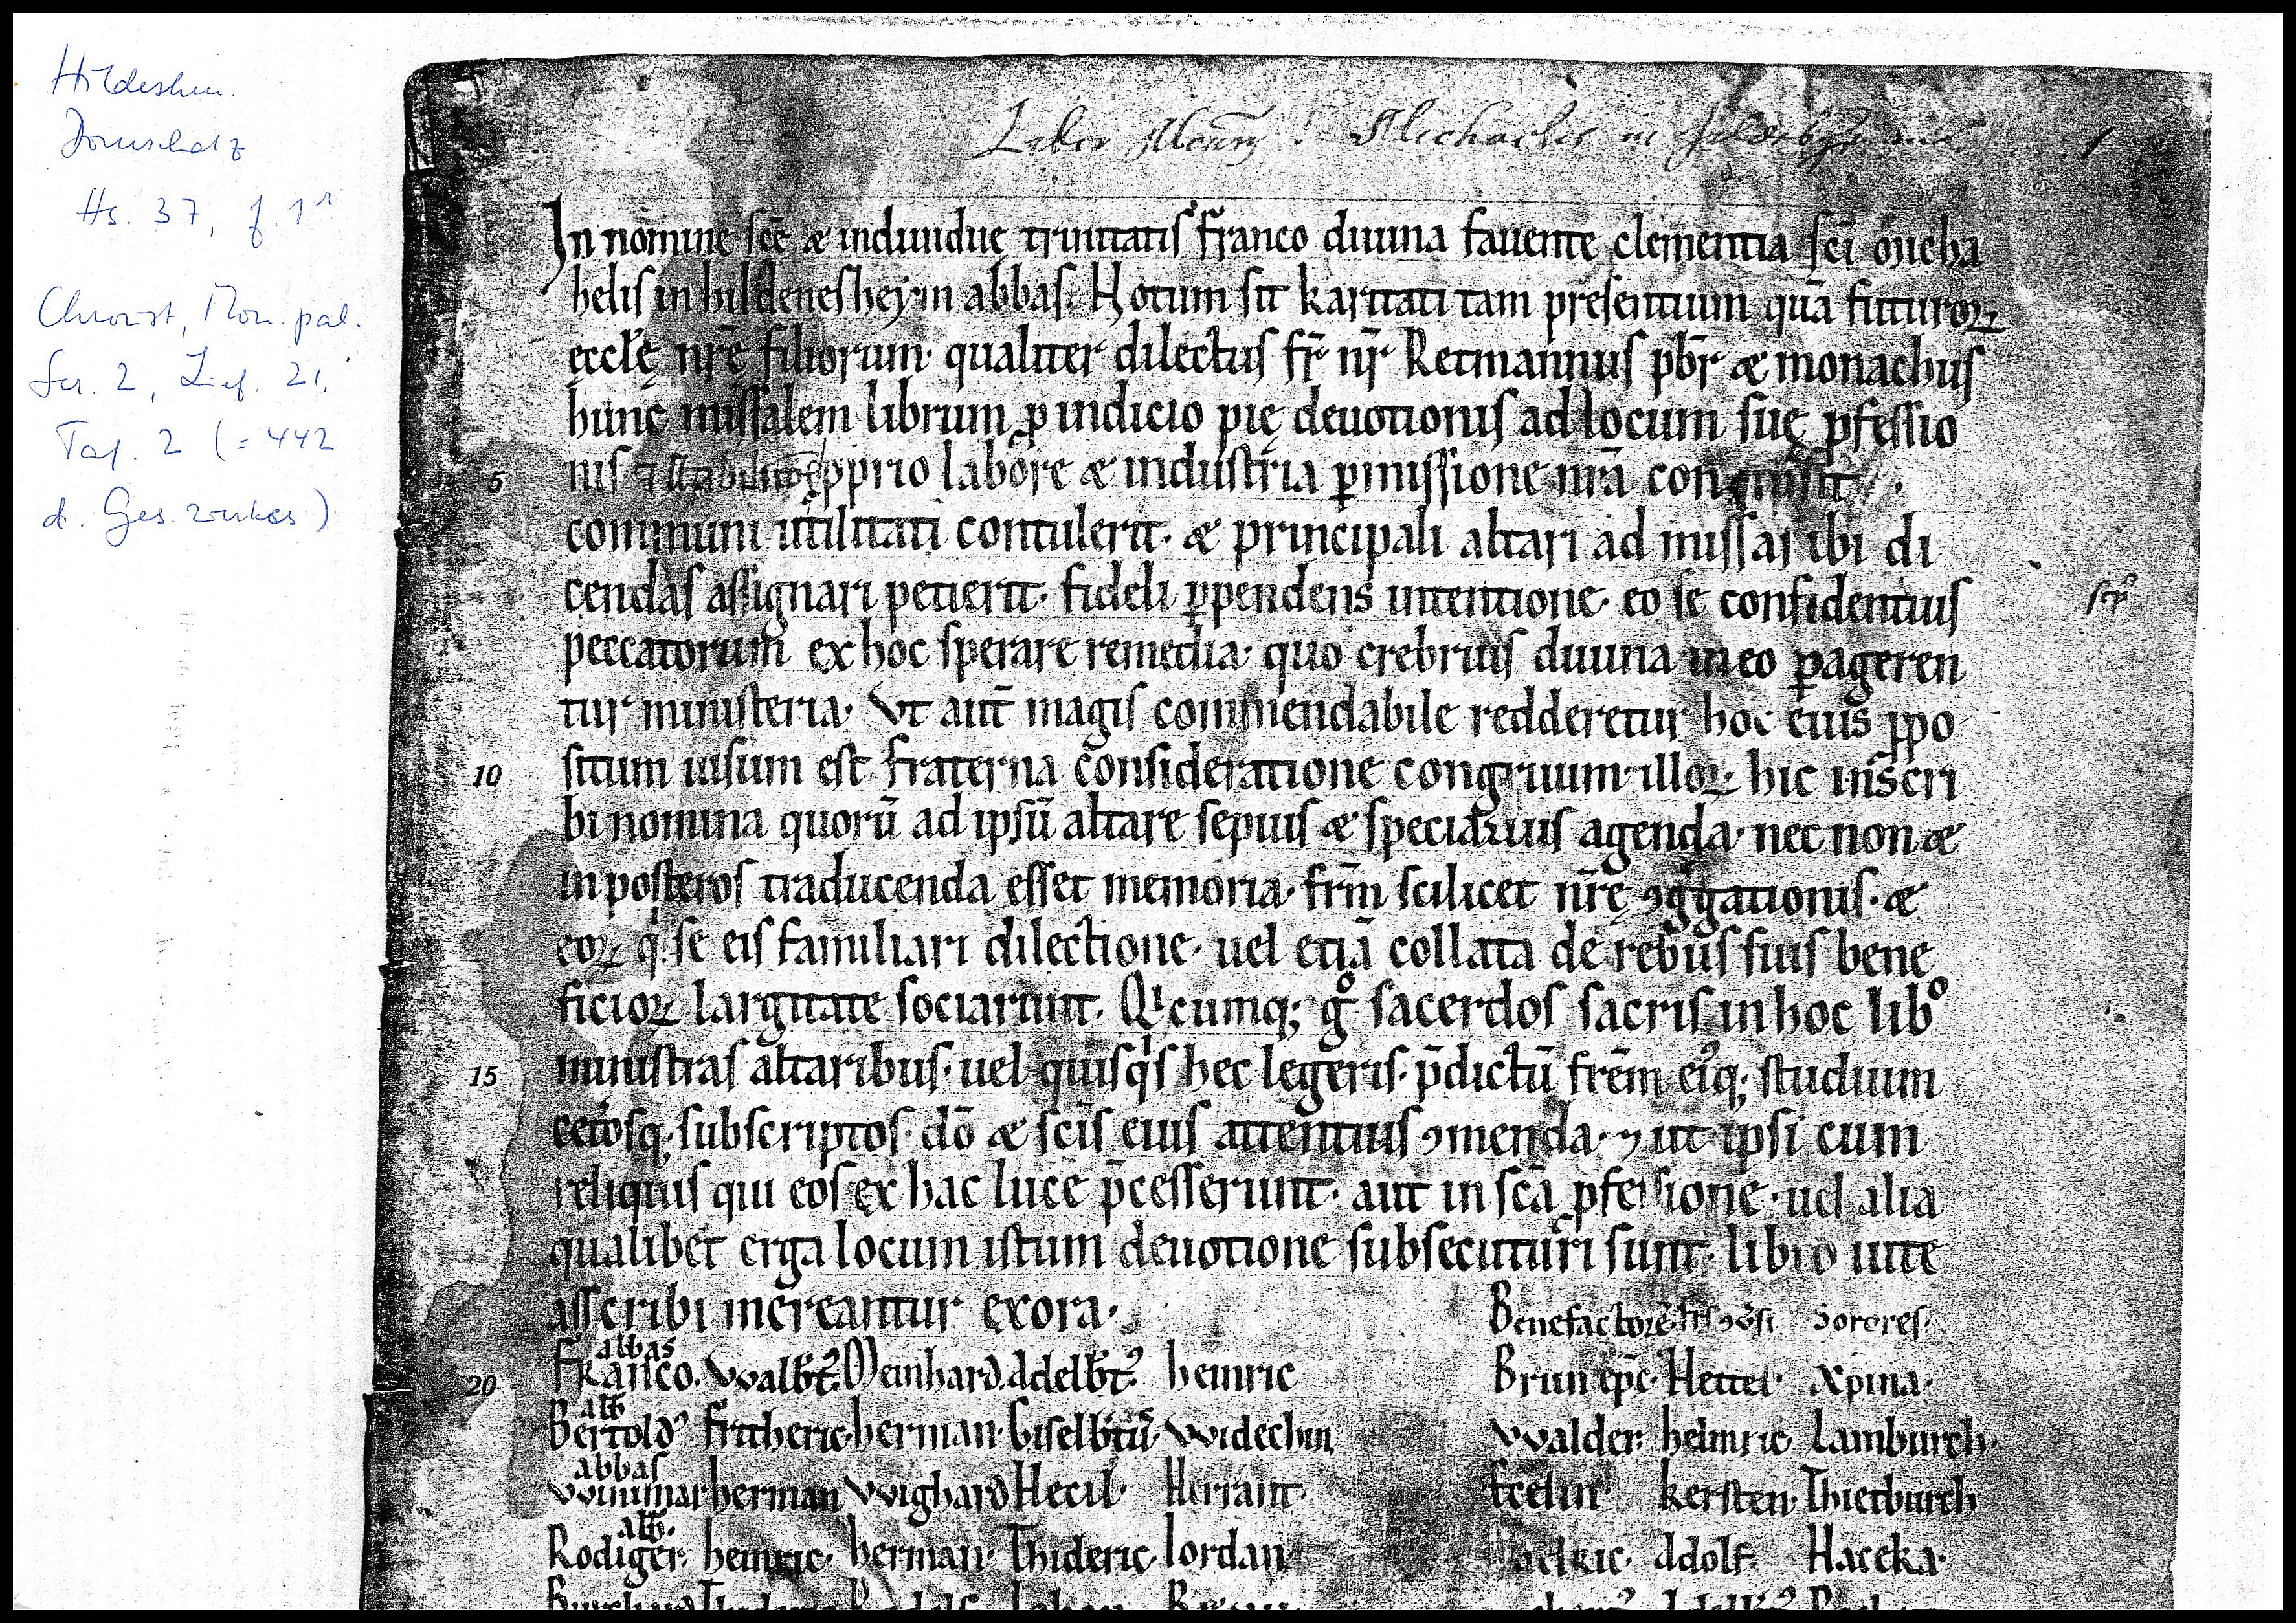 Hildesheim.
Domschatz
Hs. 37, f. 1r
Chroust, Mon. pal.
Ser. 2, Lief. 21,
Taf. 2 (= 442
d. Ges. werkes)
Liber Michaelis in
1
In nomine scē & indiuiduę trinitatis franco diuina fauente clementia sci Micha
helis in hildenesheym abbas. Notum sit karitati tam presentium quā futuroꝝ
ęcclę nr̄ę filiorum· qualiter dilectus fr̄ nr̄ Retmannus pbr̄ & monachus
hunc missalem librum ꝑ indicio pię deuotionis ad locum suę ꝓfessio
5 nis ꝓprio labore & industria ꝑmissione nr̄a conquisit
communi utilitati contulerit· & principali altari ad missas ibi di
cendas assignari petierit· fideli ꝑpendens intentione· eo se confidentius
peccatorum ex hoc sperare remedia· quo crebrius diuina in eo ꝑageren
tur ministeria· Vt aut̄ magis commendabile redderetur hoc eius ꝓpo
10 situm uisum est fraterna consideratione congruum· illoꝝ hic inscri
bi nomina quorū ad ipsū altare sepius & specialius agenda· nec non &
in posteros traducenda esset memoria· frm̄ scilicet nr̄ę ꝯg̅gationis· &
eoꝝ q̇ se eis familiari dilectione· uel etiā collata de rebus suis bene
ficioꝝ largitate sociarunt. Qicumq; gͦ sacerdos sacris in hoc libͦ
15 ministras altaribus· uel quisqis hec legeris· p̄dictū frēm eiꝰq; studium
cet̄osq; subscriptos· dō & scīs eius attentius ꝯmenda· ⁊ ut ipsi cum
reliquis qui eos ex hac luce p̄cesserunt· aut in scā ꝓfessione· uel alia
qualibet erga locum istum deuotione subsecuturi sunt· libro uite
asscribi mereantur exora·
Benefactores Sorores·
abbas
20 Franco. Walbt̄ꝰ Meinhard. Adelbt̄ꝰ heinric Brun epc̄· Hettel· Xpina·
abb
Bertoldꝰ fritheric· herman· Giselbtꝰ Widechin Walder· heinric Lamburch·
abbas
Winimar herman Wighard Hecil· Herrant· Ecelin kersten· Thietburch
abb.
Rodiger· heinric· herman· Thideric· Iordan Adolf· Haceka·